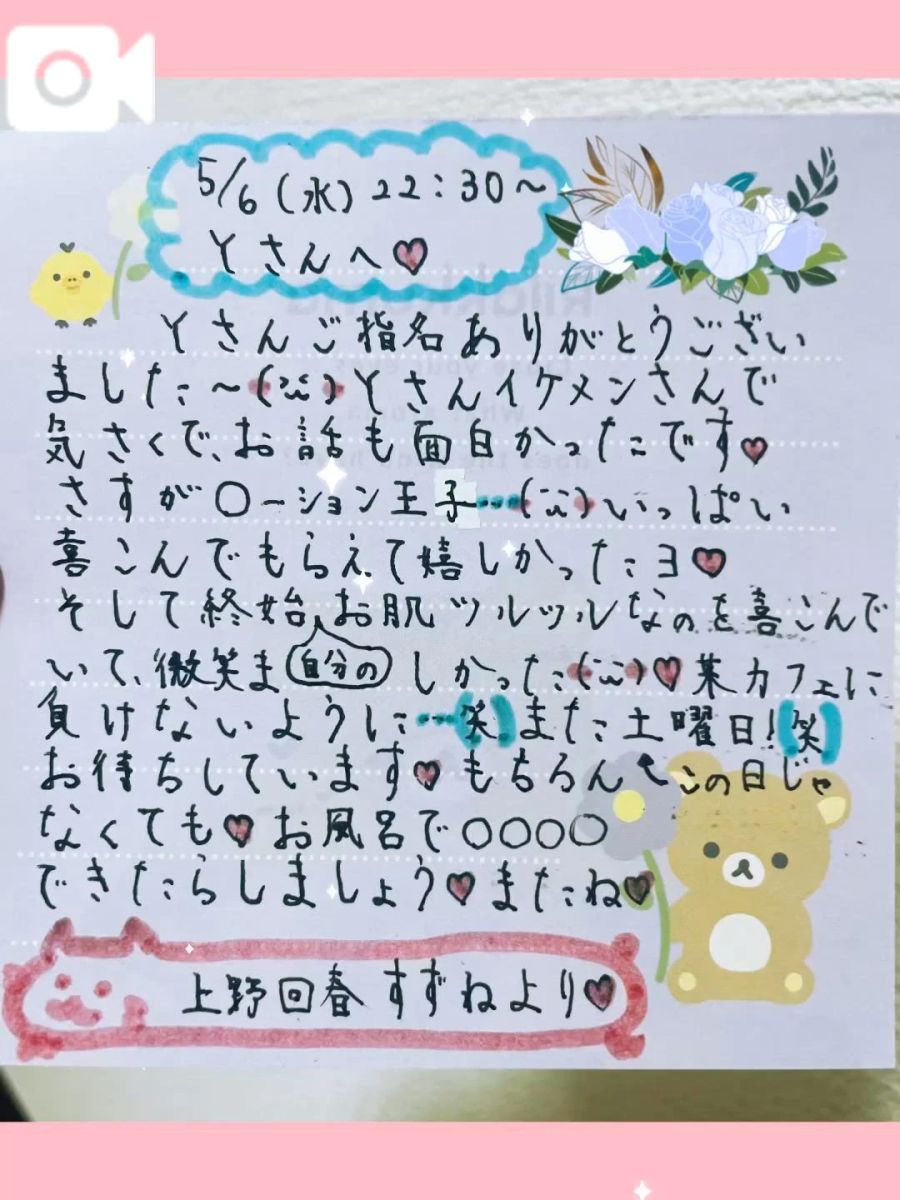 5/6(水)22:30〜
Yさんへ♥
Yさんご指名ありがとうござい
ました〜(¨)Yさんイケメンさんで
気さくで、お話も面白かったです♥
さすが〇ーション王子…(¨)いっぱい
喜こんでもらえて嬉しかったヨ♥
そして終始お肌ツルツルなのを喜こんで
自分の
いて、微笑ましかった(¨)♥某カフェに
負けないように…(笑)また土曜日!(笑)
お待ちしています♥もちろん↖この日じゃ
なくても♥お風呂で〇〇〇〇
できたらしましょう♥またね♥
上野回春すずねより♥